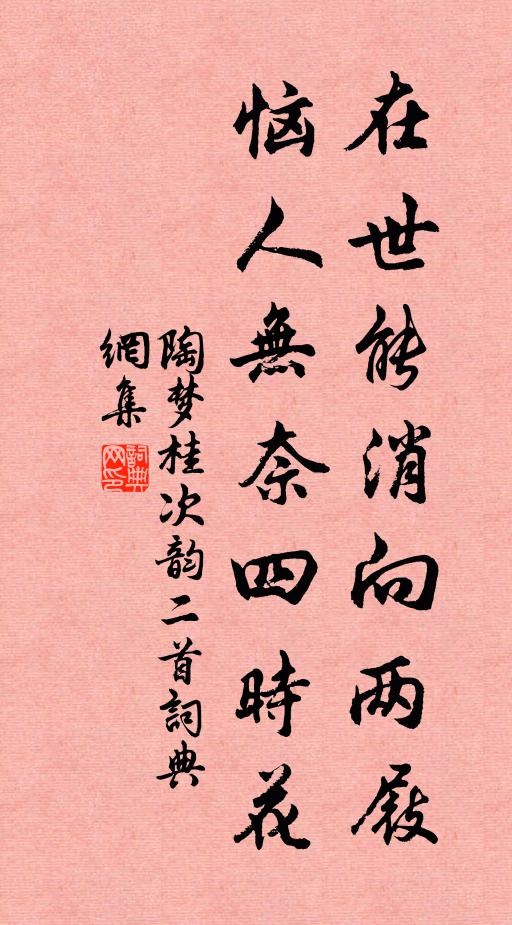 在世能消向两屐
恼人無奈四時花
陶梦桂次韵二首詞典
網集
詞典网印